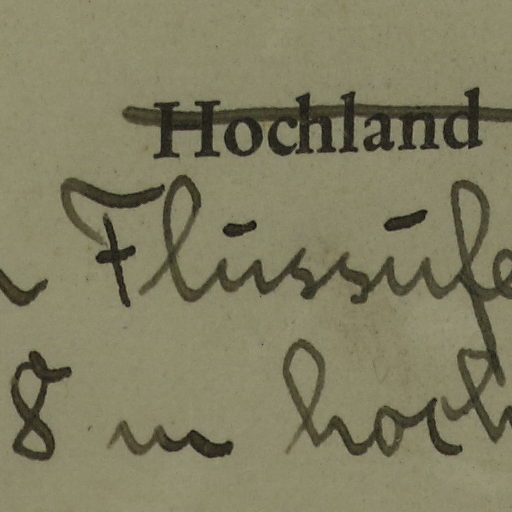 Hochland
Flussufe
8 m hoch